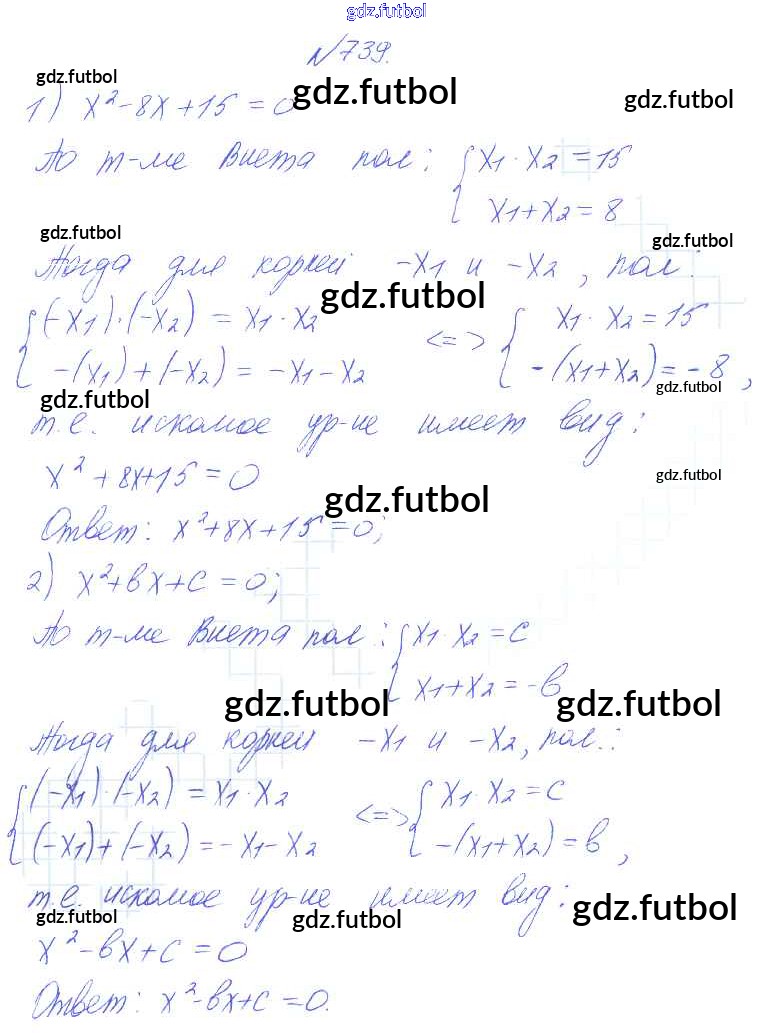 gdz.futbol
№739.
gdz.futbol
1) x²-8x+15=0 gdz.futbol gdz.futbol
По т-ме Виета пол: { x₁·x₂=15
x₁+x₂=8
gdz.futbol gdz.futbol
Тогда для корней -x₁ и -x₂, пол:
gdz.futbol
{ (-x₁)·(-x₂) = x₁·x₂ <=> { x₁·x₂=15
-(x₁)+(-x₂) = -x₁-x₂ -(x₁+x₂)=-8,
gdz.futbol gdz.futbol
т.е. искомое ур-ие имеет вид:
x²+8x+15=0 gdz.futbol
gdz.futbol
Ответ: x²+8x+15=0;
2) x²+вx+с=0;
По т-ме Виета пол: { x₁·x₂=с
x₁+x₂=-в
gdz.futbol gdz.futbol
Тогда для корней -x₁ и -x₂, пол.:
{ (-x₁)·(-x₂) = x₁·x₂ <=> { x₁·x₂=с
(-x₁)+(-x₂)=-x₁-x₂ -(x₁+x₂)=в,
т.е. искомое ур-ие имеет вид:
gdz.futbol gdz.futbol gdz.futbol
x²-вx+с=0
Ответ: x²-вx+с=0.